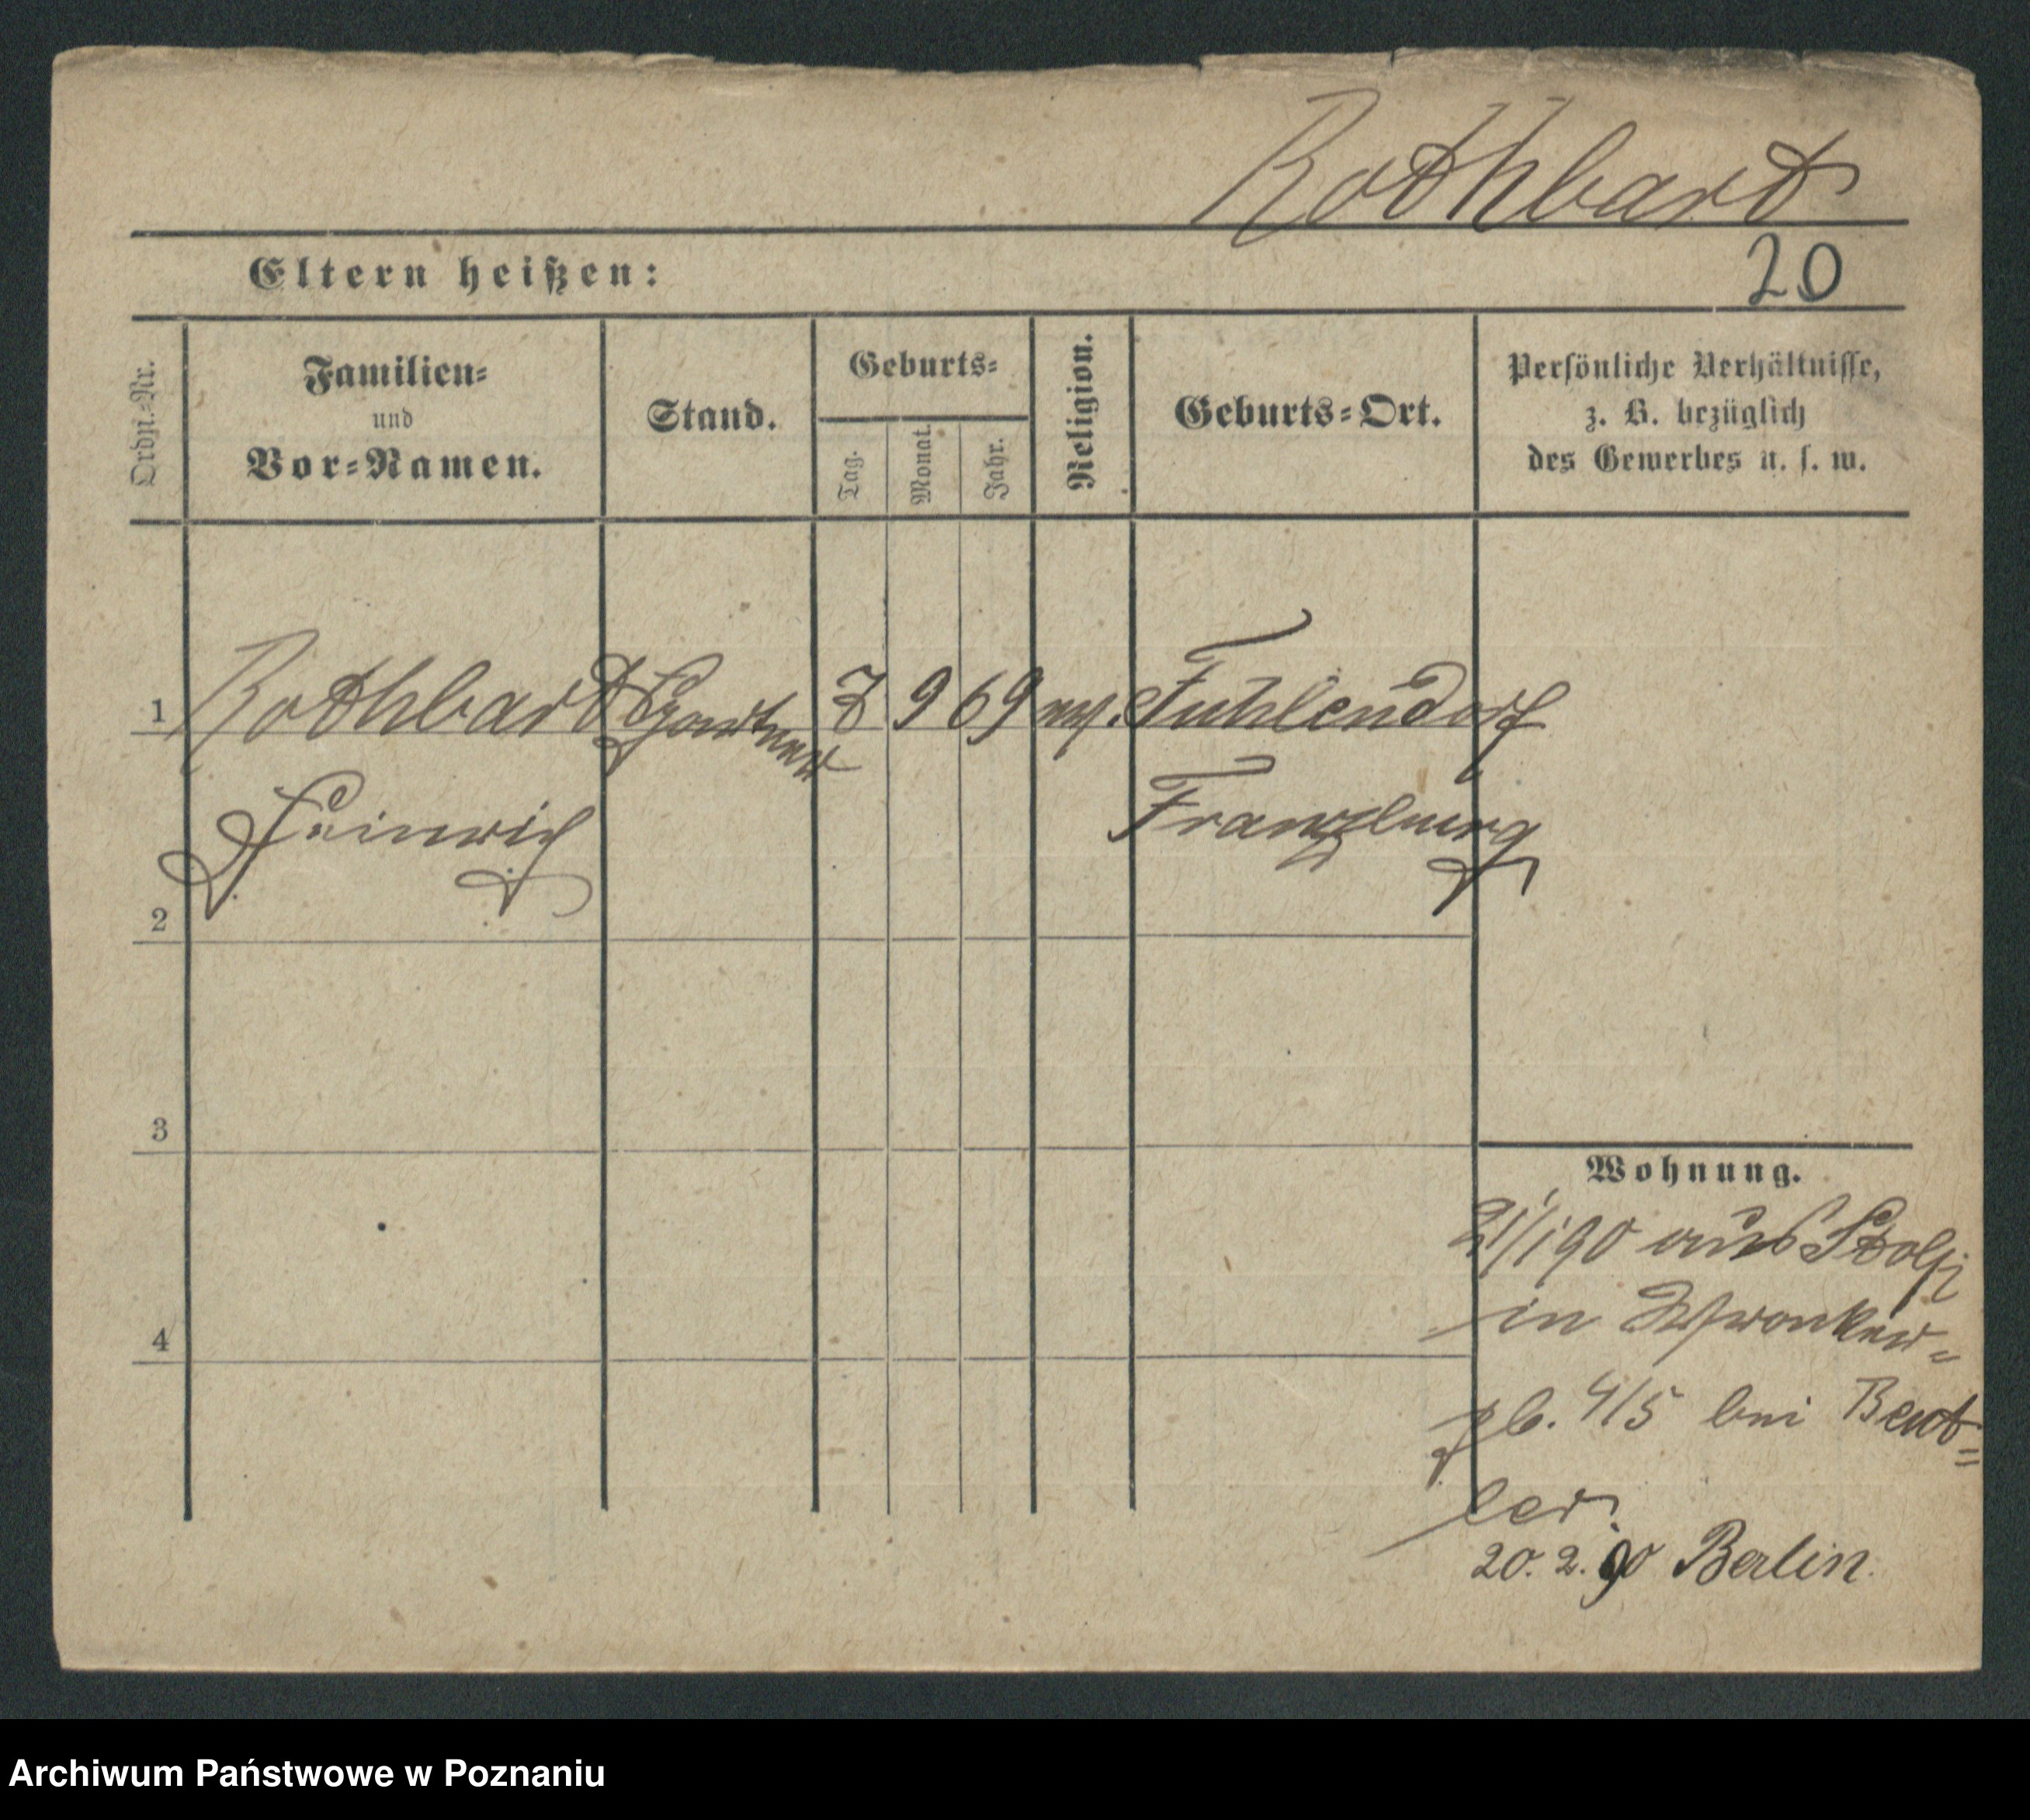 Rothbart
Eltern heißen:
20
Ordn.-Nr.
Familien-
und
Vor-Namen.
Stand.
Geburts-
Tag.
Monat.
Jahr.
Religion.
Geburts-Ort.
Persönliche Verhältnisse,
z. B. bezüglich
des Gewerbes u. s. w.
1 Rothbart Gärtner 7 9 69 Fuhlendorf
Heinrich Franzburg
2
3
Wohnung.
21/1 90 aus Stolp
in Wronker-
pl. 4/5 bei Beut-
4
ler.
20. 2. 90 Berlin.
Archiwum Państwowe w Poznaniu